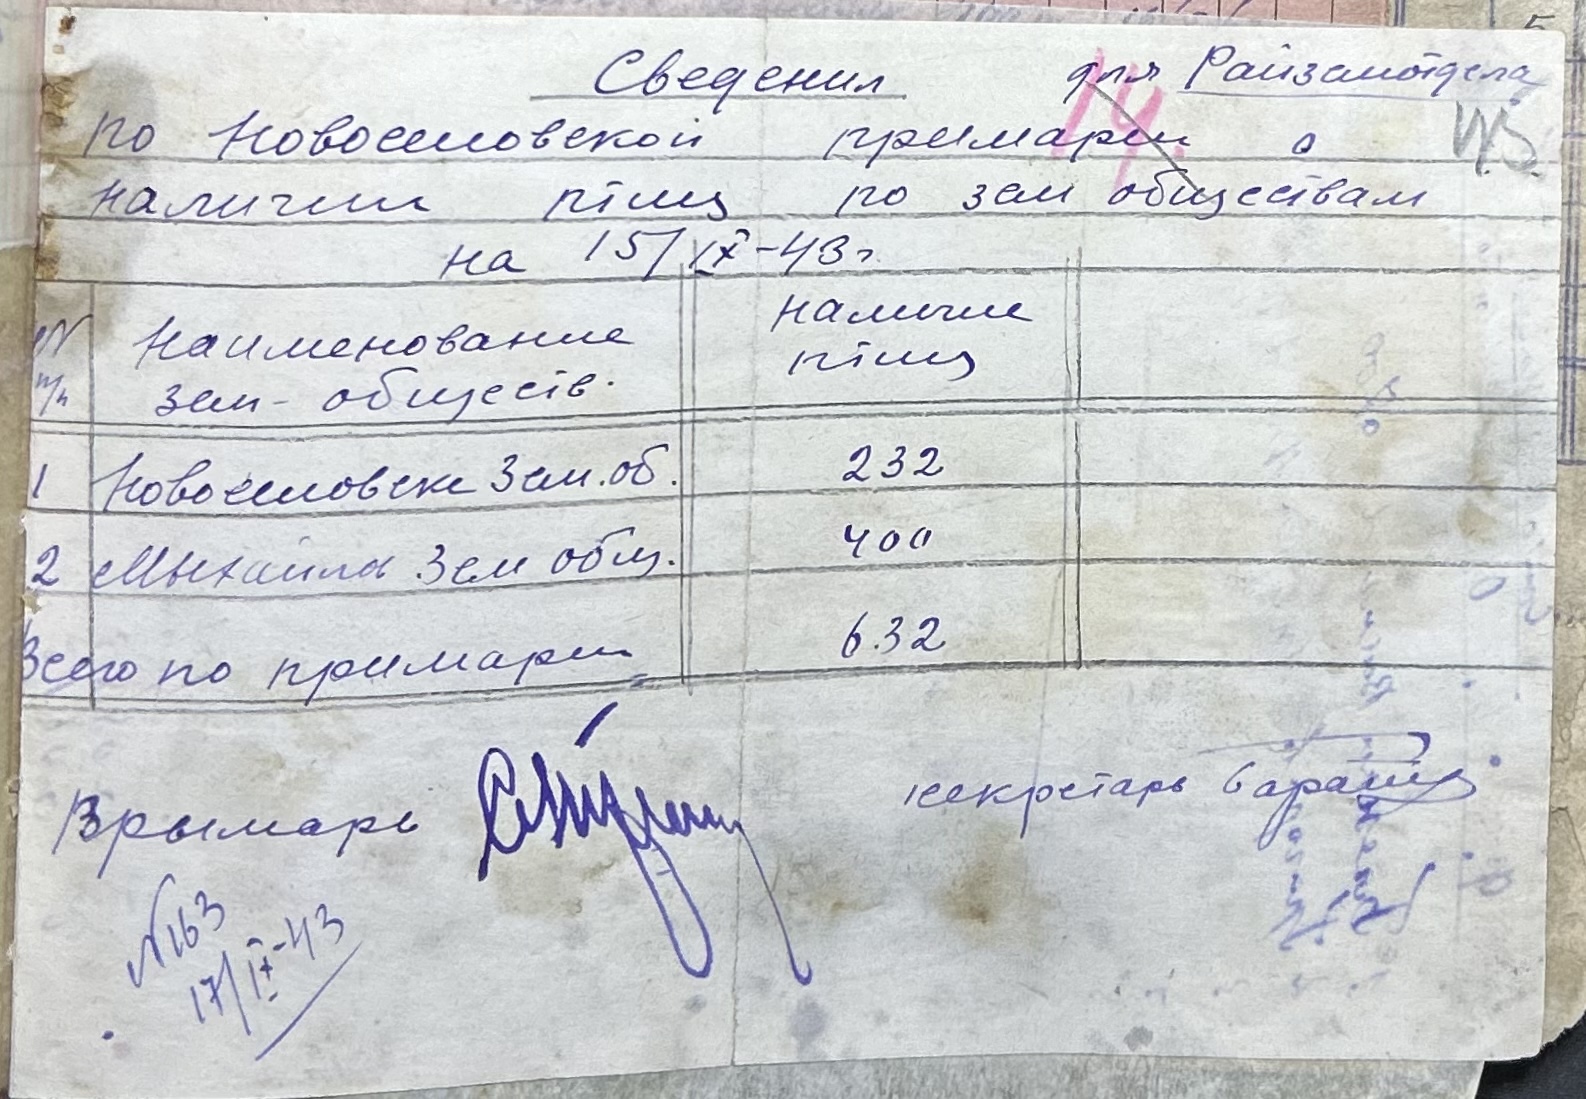 Сведения для Райзамотдела
по Новоселовской примарии о
наличии птиц по зем обществам
на 15/IX-43 г
N п/п Наименование зем-обществ. наличие птиц
1 Новоселовске Зем.об. 232
2 Михаила Зем общ. 400
Всего по примарии 632
секретарь
N163
17/IX-43
14.